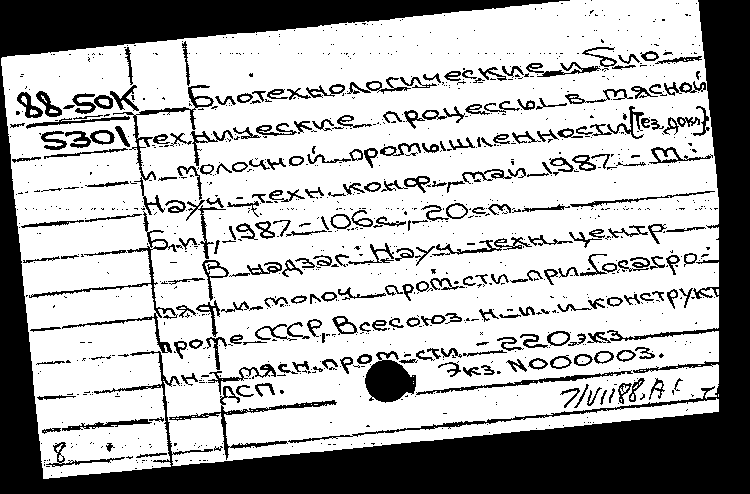 88-50К Биотехнологические и био-
5301 технические процессы в мясной
и молочной промышленности: [Тез. докл.]:
Науч.-техн. конф., май 1987. - М.:
Б.и., 1987. - 106с.; 20см.
В надзаг.: Науч.-техн. центр
мясн. и молоч. пром-сти при Госагро-
проме СССР, Всесоюз. н.-и. и конструкт
ин-т мясн. пром-сти. - 220экз.
Экз. N000003.
ДСП.
7/VII88.
8